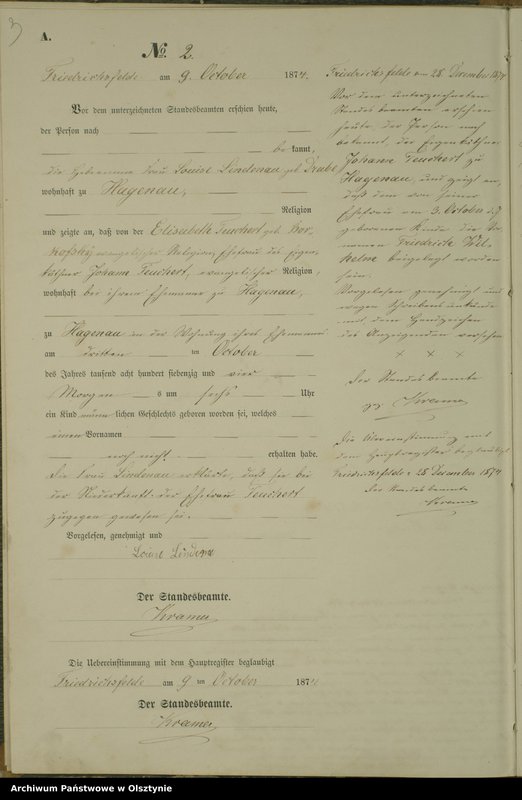 3
A.
№ 2.
Friedrichsfelde am 9. October 1874.
Vor dem unterzeichneten Standesbeamten erschien heute,
der Person nach
bekannt,
die Hebeamme Frau Louise Lindenau geb.
wohnhaft zu Hagenau,
Religion
und zeigte an, daß von der Elisabeth Teuchert geb.
evangelischer Religion, Ehefrau des Eigen-
käthner Johann Teuchert, evangelischer Religion,
wohnhaft bei ihrem Ehemanne zu Hagenau,
zu Hagenau in der Wohnung ihres Ehemannes
am dritten ten October
des Jahres tausend acht hundert siebenzig und vier
Morgen s um sechs Uhr
ein Kind lichen Geschlechts geboren worden sei, welches
einen Vornamen
noch nicht erhalten habe.
Die Frau Lindenau erklärte, daß sie bei
der Niederkunft der Ehefrau Teuchert
zugegen gewesen sei.
Vorgelesen, genehmigt und
Louise Lindenau
Der Standesbeamte.
Kramer
Die Uebereinstimmung mit dem Hauptregister beglaubigt
Friedrichsfelde am 9 ten October 1874
Der Standesbeamte.
Kramer
Friedrichsfelde am 28. December 1874
Vor dem unterzeichneten
Standesbeamten erschien
heute, der Person nach
bekannt, der Eigenkäthner
Johann Teuchert zu
Hagenau, und zeigte an,
daß dem von seiner
Ehefrau am 3. October d. J.
geborenen Kinde die Vor-
namen Friedrich Wil-
helm beigelegt worden
seien.
Vorgelesen genehmigt und
wegen Schreibensunkunde
mit dem Handzeichen
des Anzeigenden versehen
× × ×
Der Standesbeamte
gez. Kramer
Die Übereinstimmung mit
dem Hauptregister beglaubigt
Friedrichsfelde, 28. December 1874
Der Standesbeamte
Kramer
Archiwum Państwowe w Olsztynie